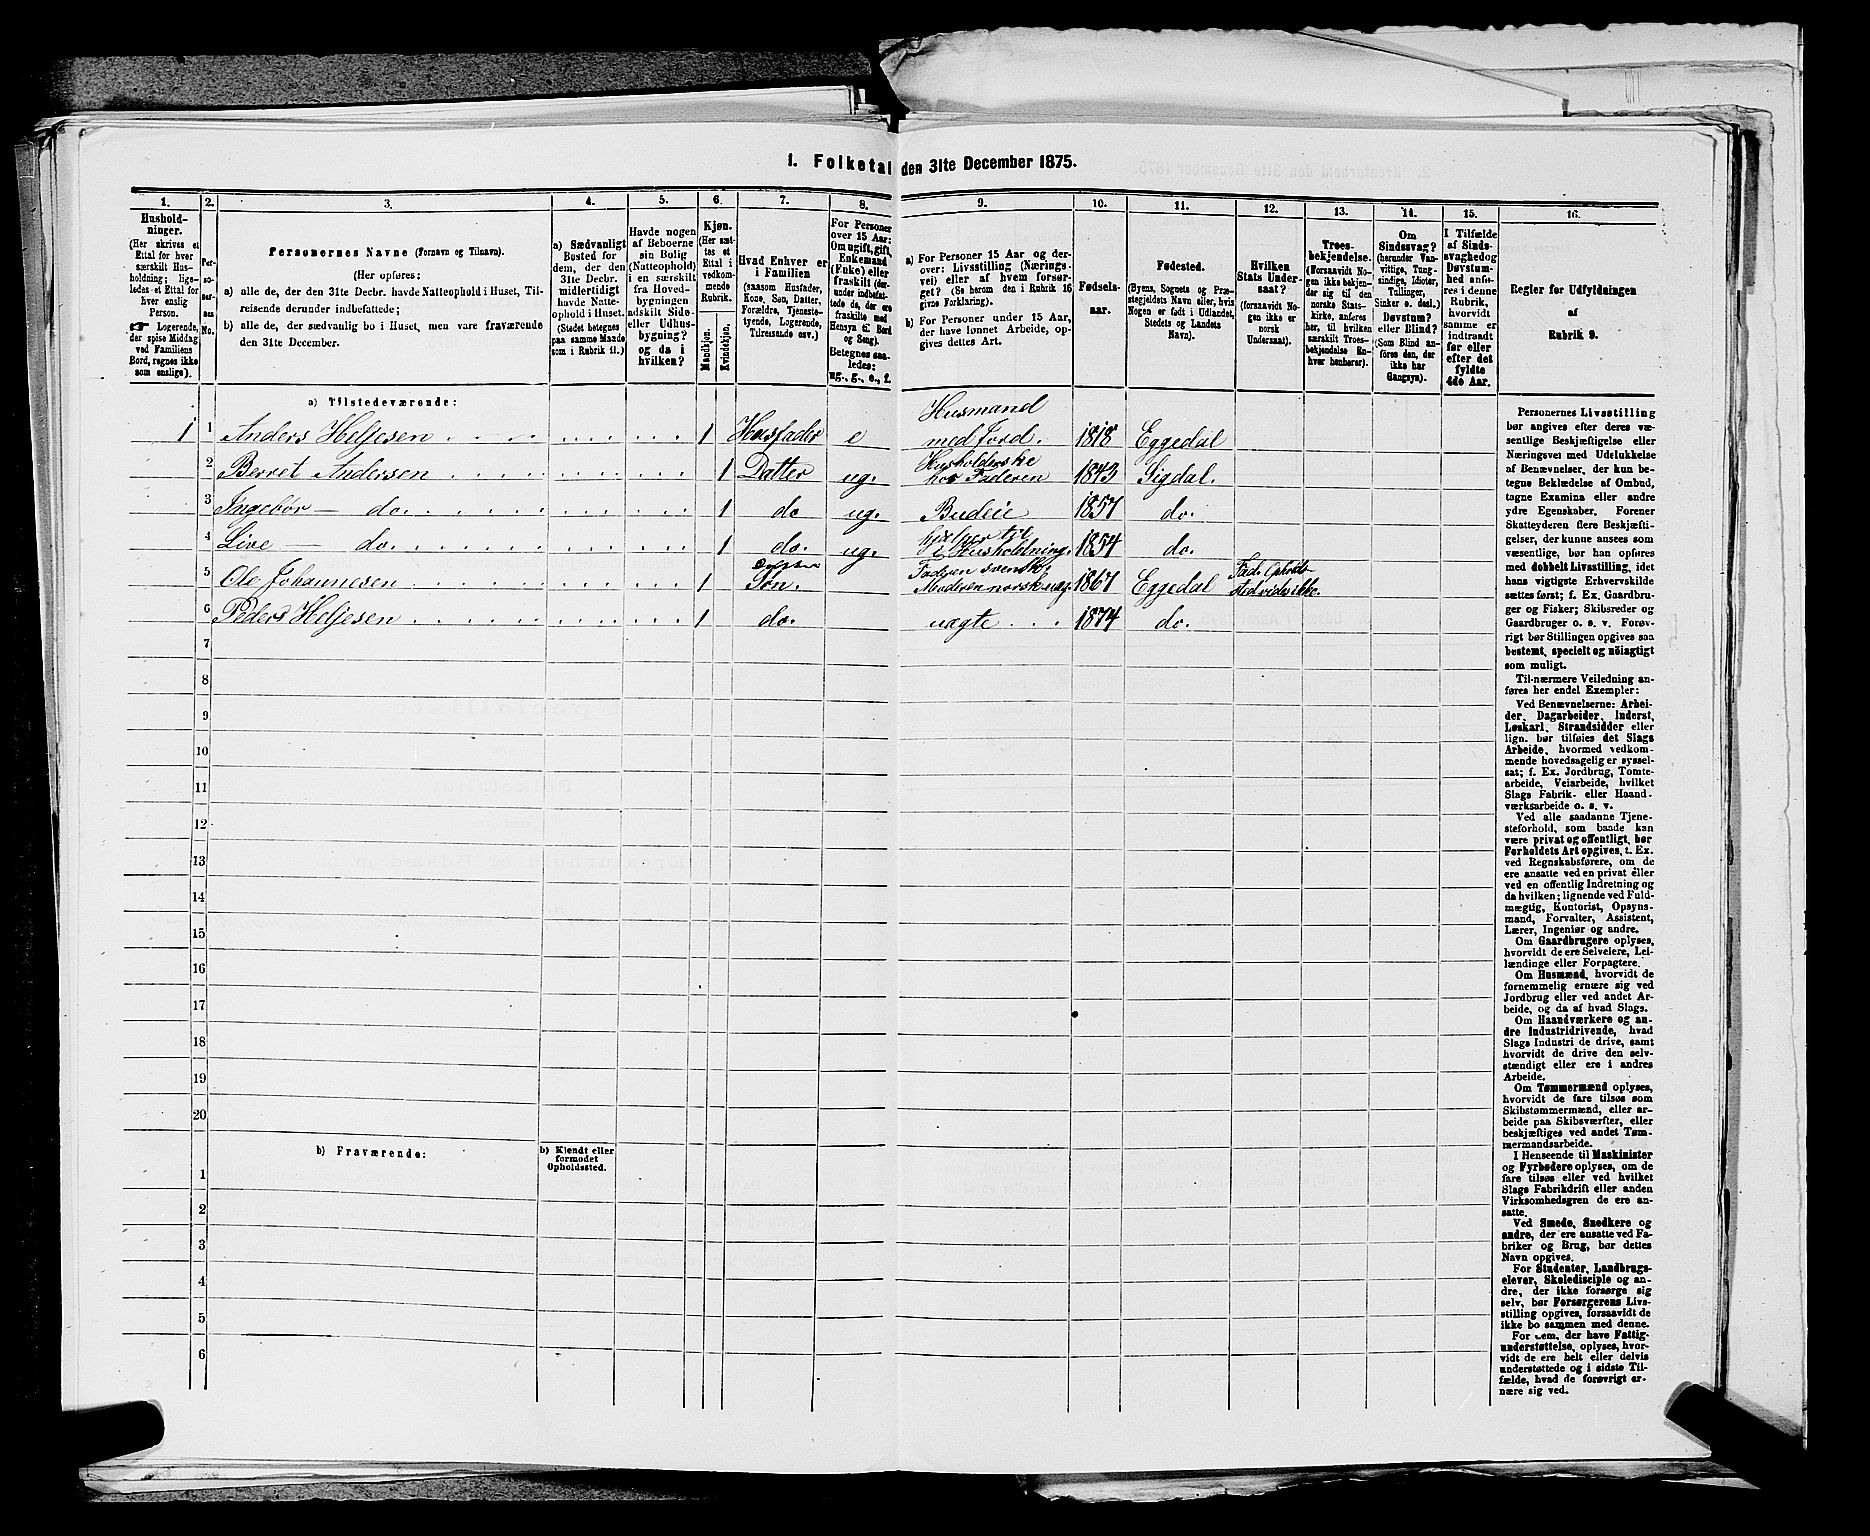 1. Folketal den 31te December 1875.
1. 2. 3. 4. 5. 6. 7. 8. 9. 10. 11. 12. 13. 14. 15. 16.
Hushold-
ninger.
(Her skrives et
Ettal for hver
særskilt Hus-
holdning; lige-
ledes et Ettal for
hver enslig
Person.
☞ Logerende,
der spise Middag
ved Familiens
Bord, regnes ikke
som enslige).
Per-
so-
ner-
nes
No.
Personernes Navne (Fornavn og Tilnavn).
(Her opføres:
a) alle de, der den 31te Decbr. havde Natteophold i Huset, Til-
reisende derunder indbefattede;
b) alle de, der sædvanlig bo i Huset, men vare fraværende
den 31te December.
a) Sædvanligt
Bosted for
dem, der den
31te Decbr.
midlertidigt
havde Natte-
ophold i Huset.
(Stedet betegnes
paa samme Maade
som i Rubrik 11.)
Havde nogen
af Beboerne
sin Bolig
(Natteophold)
i en særskilt
fra Hoved-
bygningen
adskilt Side-
eller Udhus-
bygning?
og da i
hvilken?
Kjøn.
(Her sæt-
tes et
Ettal i
vedkom-
mende
Rubrik.
Mandkjøn.
Kvindekjøn.
Hvad Enhver er
i Familien
(saasom Husfader,
Kone, Søn, Datter,
Forældre, Tjeneste-
tyende, Logerende,
Tilreisende osv.)
For Personer
over 15 Aar:
Om ugift, gift,
Enkemand
(Enke) eller
fraskilt (der-
under indbefat-
tede de, der ere
fraskilte med
Hensyn til Bord
og Seng).
Betegnes saa-
ledes:
ug., g., e., f.
a) For Personer 15 Aar og der-
over: Livsstilling (Nærings-
vei) eller af hvem forsør-
get? (Se herom den i Rubrik 16
givne Forklaring).
b) For Personer under 15 Aar,
der have lønnet Arbeide, op-
gives dettes Art.
Fødsels-
aar.
Fødested.
(Byens, Sognets og Præ-
stegjeldets Navn eller, hvis
Nogen er født i Udlandet,
Stedets og Landets
Navn).
Hvilken
Stats Under-
saat?
(forsaavidt No-
gen ikke er
norsk
Undersaat).
Troes-
bekjendelse.
(Forsaavidt No-
gen ikke bekjen-
der sig til den
norske Stats-
kirke, anføres
her, til hvilken
særskilt Troes-
bekjendelse En-
hver henhører).
Om
Sindssvag?
(herunder Van-
vittige, Tung-
sindige, Idioter,
Tullinger,
Sinker o. desl.)
Døvstum?
eller Blind?
(Som Blind an-
føres den, der
ikke har
Gangsyn).
I Tilfælde
af Sinds-
svaghed og
Døvstum-
hed anfø-
res i denne
Rubrik,
hvorvidt
samme er
indtraadt
før eller
efter det
fyldte
4de Aar.
Regler for Udfyldningen
af
Rubrik 9.
a) Tilstedeværende:
1 1 Anders Heljesen 1 Husfader e Husmand
med Jord. 1818 Eggedal
2 Berret Andersen 1 Datter ug. Husholderske
hos Faderen 1843 Sigdal.
3 Ingebor — do. 1 do ug. Budeie 1857 do.
4 Live — do. 1 do. ug. hjælper til
i Husholdning. 1854 do.
5 Ole Johannesen 1 Søn. Faderen svensk,
Moderen norsk, uæg. 1867 Eggedal Fad. Opholds-
sted vides ikke.
6 Peders Heljesen 1 do. uægte 1874 do.
7
8
9
10
11
12
13
14
15
16
17
18
19
20
b) Fraværende:
b) Kjendt eller
formodet
Opholdssted.
1
2
3
4
5
6
Personernes Livsstilling
bør angives efter deres væ-
sentlige Beskjæftigelse eller
Næringsvei med Udelukkelse
af Benævnelser, der kun be-
tegne Beklædelse af Ombud,
tagne Examina eller andre
ydre Egenskaber. Forener
Skatteyderen flere Beskjæfti-
gelser, der kunne ansees som
væsentlige, bør han opføres
med dobbelt Livsstilling, idet
hans vigtigste Erhvervskilde
sættes først; f. Ex. Gaardbru-
ger og Fisker; Skibsreder og
Gaardbruger o. s. v. Forøv-
rigt bør Stillingen opgives saa
bestemt, specielt og nöiagtigt
som muligt.
Til nærmere Veiledning an-
føres her endel Exempler:
Ved Benævnelserne: Arbei-
der, Dagarbeider, Inderst,
Løskarl, Strandsidder eller
lign. bør tilføies det Slags
Arbeide, hvormed vedkom-
mende hovedsagelig er syssel-
sat; f. Ex. Jordbrug, Tomte-
arbeide, Veiarbeide, hvilket
Slags Fabrik- eller Haand-
værksarbeide o. s. v.
Ved alle saadanne Tjene-
steforhold, som baade kan
være privat og offentligt, bør
Forholdets Art opgives, t. Ex.
ved Regnskabsførere, om de
ere ansatte ved en privat eller
ved en offentlig Indretning og
da hvilken; lignende ved Fuld-
mægtig, Kontorist, Opsyns-
mand, Forvalter, Assistent,
Lærer, Ingeniør og andre.
Om Gaardbrugere oplyses,
hvorvidt de ere Selveiere, Lei-
lændinge eller Forpagtere.
Om Husmænd, hvorvidt de
fornemmelig ernære sig ved
Jordbrug eller ved andet Ar-
beide, og da af hvad Slags.
Om Haandværkere og an-
dre Industridrivende, hvad
Slags Industri de drive, samt
hvorvidt de drive den selv-
stændigt eller ere i andres
Arbeide.
Om Tømmermænd oplyses,
hvorvidt de fare tilsøs som
Skibstømmermænd, eller ar-
beide paa Skibsværfter, eller
beskjæftiges ved andet Tøm-
mermandsarbeide.
I Henseende til Maskinister
og Fyrbødere oplyses, om de
fare tilsøs eller ved hvilket
Slags Fabrikdrift eller anden
Virksomhedsgren de ere an-
satte.
Ved Smede, Snedkere og
andre, der ere ansatte ved Fa-
briker og Brug, bør dettes
Navn opgives.
For Studenter, Landbrugs-
elever, Skoledisciple og an-
dre, der ikke forsørge sig
selv, bør Forsørgerens Livs-
stilling opgives, forsaavidt de
ikke bo sammen med denne.
For dem, der have Fattig-
understøttelse, oplyses, hvor-
vidt de ere helt eller delvis
understøttede og i sidste Til-
fælde, hvad de forøvrigt er-
nære sig ved.